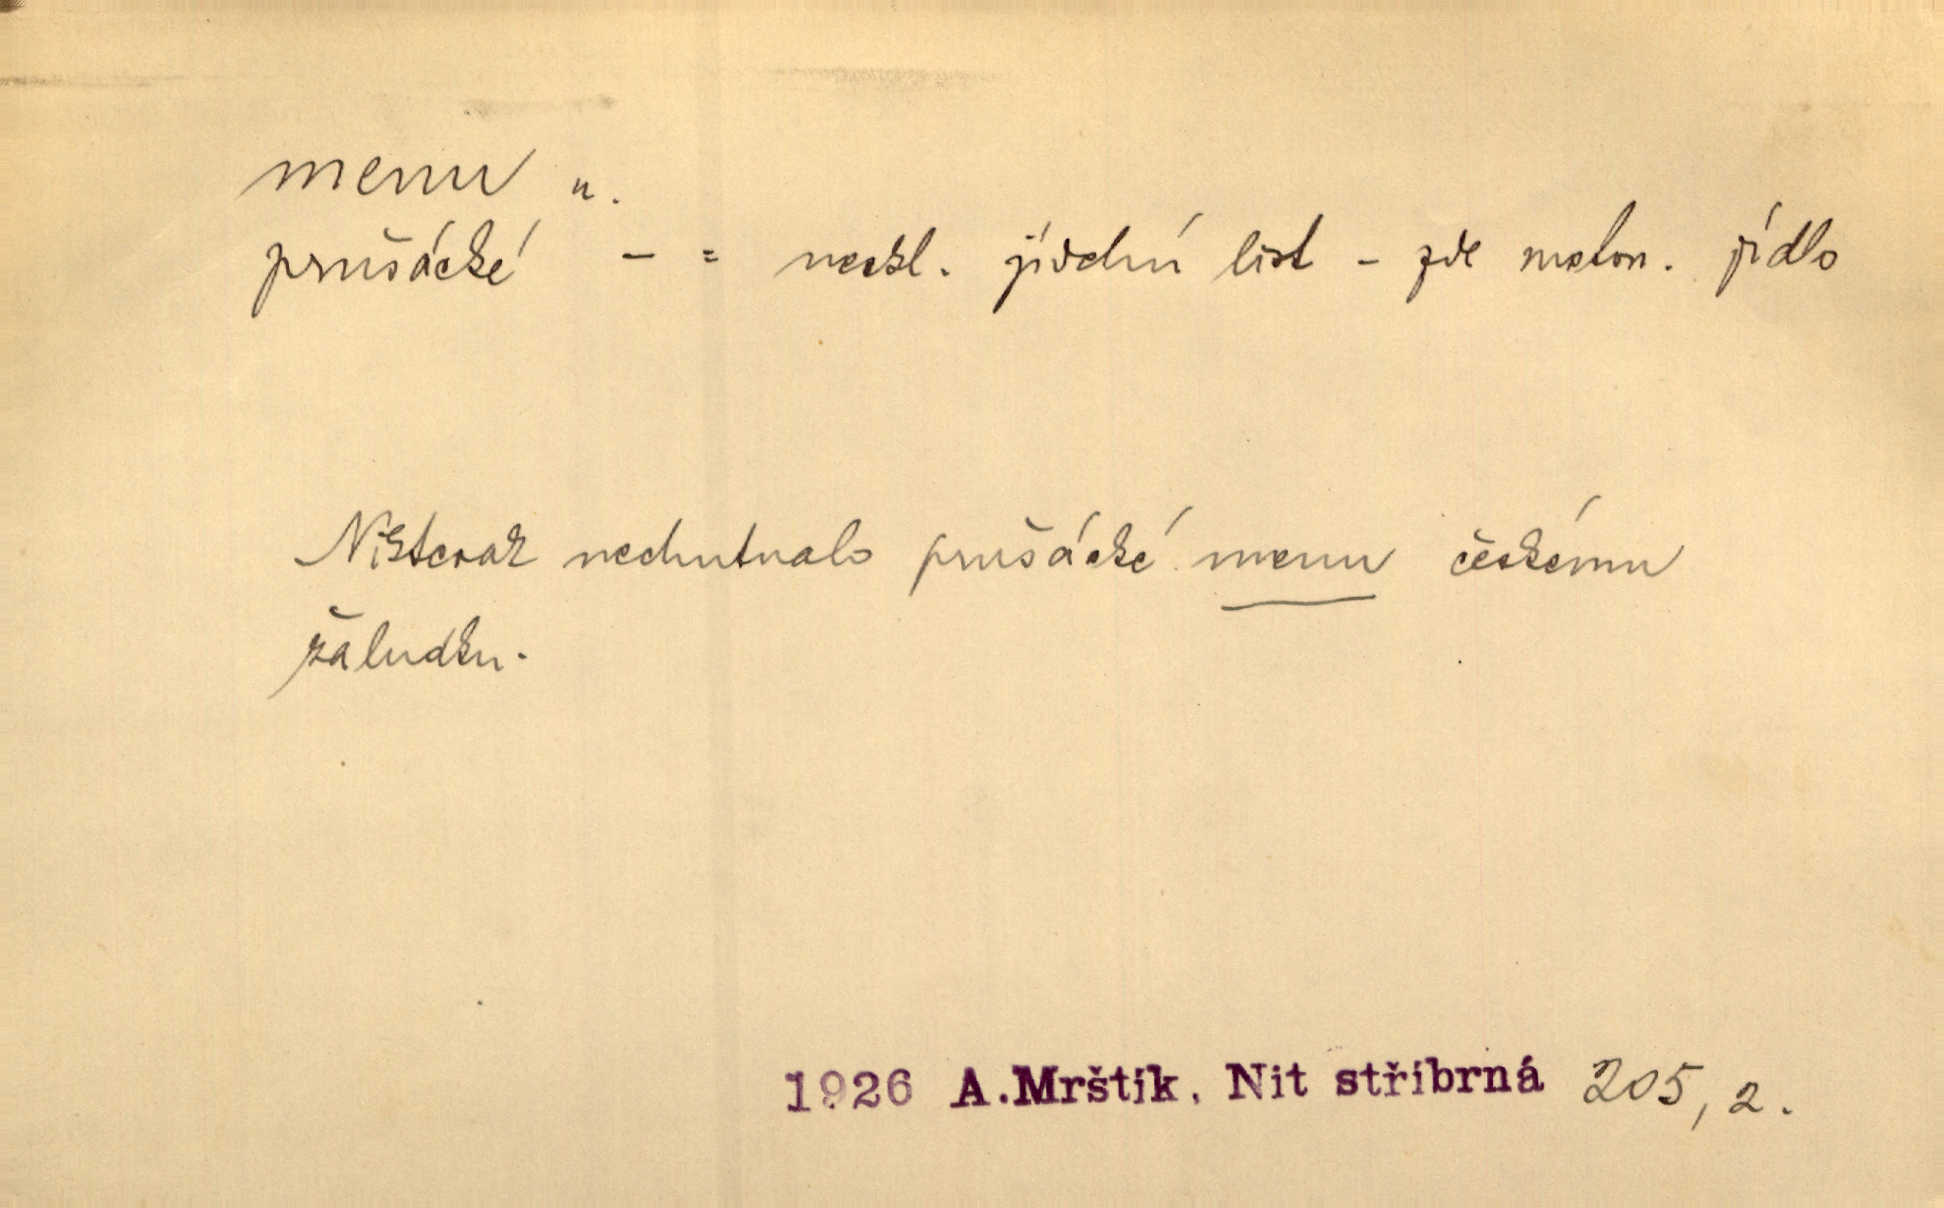 menu n.
prušácké - = neskl. jídelní list - zde meton. jídlo
Nikterak nechutnalo prušácké menu českému
žaludku.
1926 A.Mrštík, Nit stříbrná 205, 2.